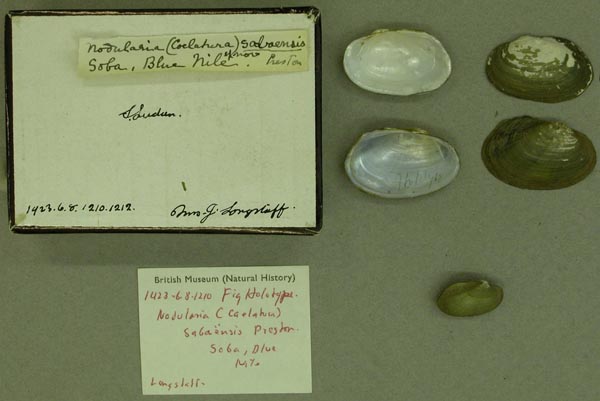 Nodularia (Coelatura) sabaensis
Soba, Blue Nile. Preston
S. Sudan.
1923.6.8.1210.1212. Mrs. J. Longstaff.
British Museum (Natural History)
1923-6-8-1210 Fig Holotype.
Nodularia (Caelatura)
Sabaënsis Preston.
Soba, Blue
Nile
Longstaff.